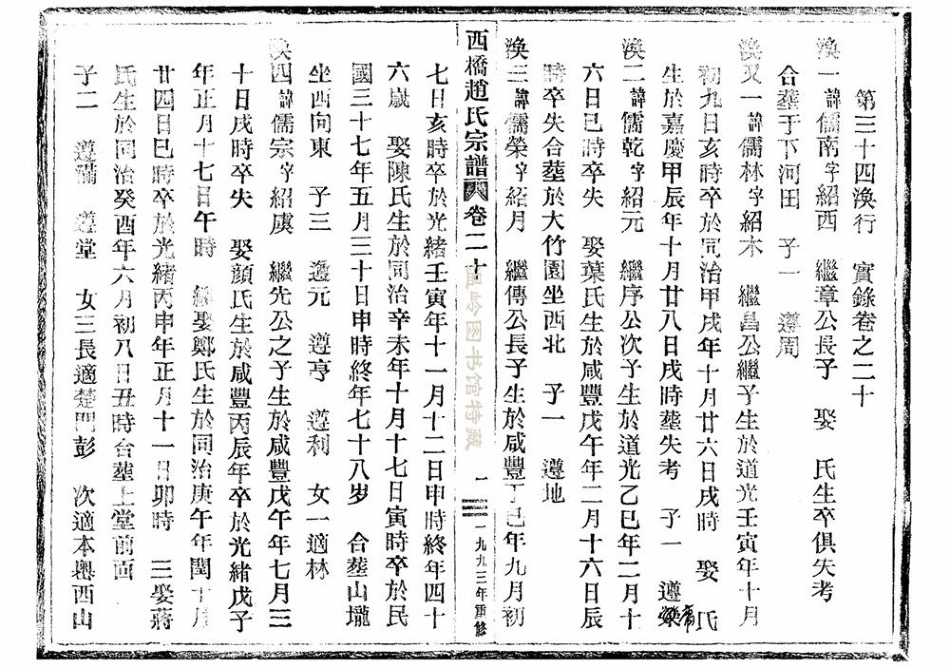 第三十四渙行　實錄卷之二十
渙一諱儒南字紹西　繼章公長子　娶　氏生卒俱失考
合葬于下河田　子一　遵周
渙又一諱儒林字紹木　繼昌公繼子生於道光壬寅年十月
初九日亥時卒於同治甲戌年十月廿六日戌時　娶　氏
生於嘉慶甲辰年十月廿八日戌時葬失考　子一　遵
渙二諱儒乾字紹元　繼序公次子生於道光乙巳年二月十
六日巳時卒失　娶葉氏生於咸豐戊午年二月十六日辰
時卒失合葬於大竹園坐西北　子一　遵地
渙三諱儒榮字紹月　繼傳公長子生於咸豐丁巳年九月初
西橋趙氏宗譜　卷二十　一　一九九三年重修
溫岭图书馆特藏
七日亥時卒於光緒壬寅年十一月十二日申時終年四十
六歲　娶陳氏生於同治辛未年十月十七日寅時卒於民
國三十七年五月三十日申時終年七十八岁　合葬山壠
坐西向東　子三　遵元　遵亨　遵利　女一適林
渙四諱儒宗字紹虞　繼先公之子生於咸豐戊午年七月三
十日戌時卒失　娶顏氏生於咸豐丙辰年卒於光緒戊子
年正月十七日午時　繼娶鄭氏生於同治庚午年閏十月
廿四日巳時卒於光緒丙申年正月十一日卯時　三娶蔣
氏生於同治癸酉年六月初八日丑時合葬上堂前面
子二　遵滿　遵堂　女三長適楚門彭　次適本嶴西山